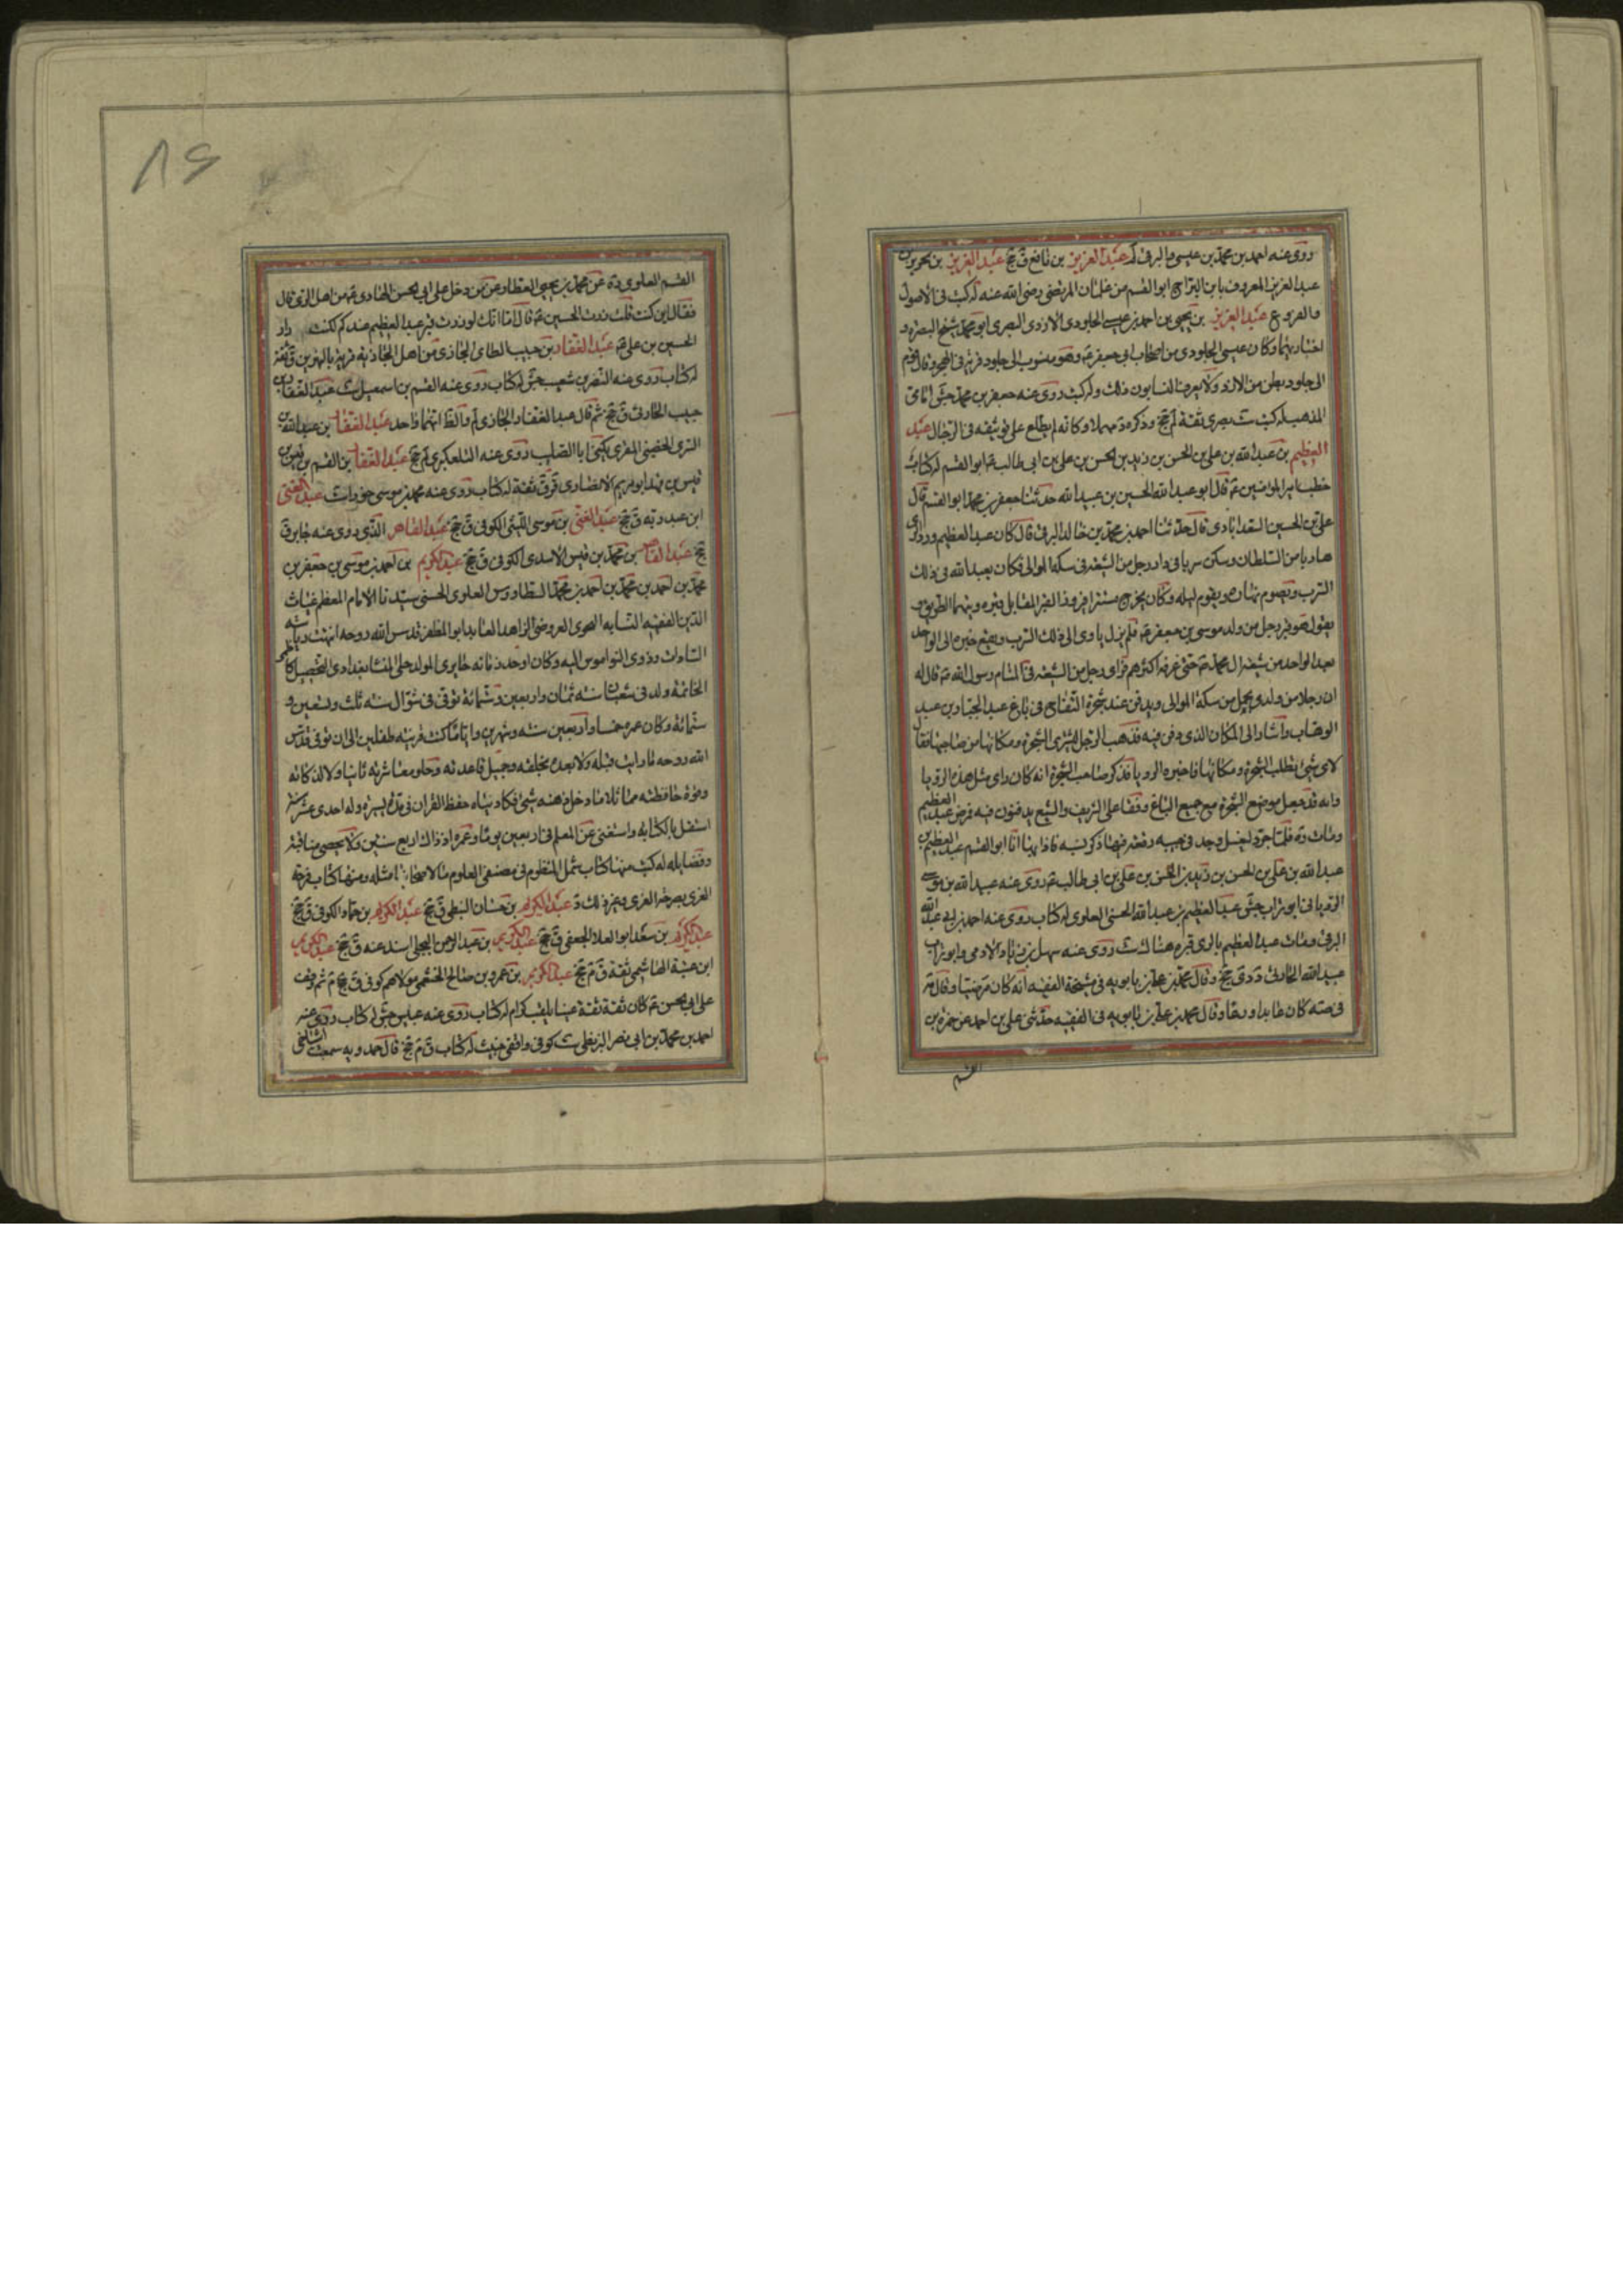 روى عنه احمد بن محمد بن عيسى والبرقى لم عبد العزيز بن نافع ق جخ عبد العزيز بن تحرير بن
عبد العزيز المعروف بابن البراج ابو القسم من غلمان المرتضى رضى الله عنه له كتب فى الاصول
والفروع ع عبد العزيز بن يحيى بن احمد بن عيسى الجلودى الازدى البصرى ابو محمد شيخ البصره و
اخباريها وكان عيسى الجلودى من اصحاب ابى جعفر ع وهو منسوب الى جلود قريه فى البحر وقال قوم
الى جلود بطن من الازد ولا يعرف النسابون ذلك وله كتب روى عنه جعفر بن محمد جش امامى
المذهب له كتب ست بصرى ثقة لم جخ وذكره د مهملا وكانه لم يطلع على توثيقه فى الرجال عبد
العظيم بن عبد الله بن على بن الحسن بن زيد بن الحسن بن على بن ابى طالب ع ابو القسم له كتاب
خطب امير المؤمنين ع قال ابو عبد الله الحسين بن عبيد الله حدثنا جعفر بن محمد ابو القسم قال
على بن الحسين السعدابادى قال حدثنا احمد بن محمد بن خالد البرقى قال كان عبد العظيم ورد الرى
هاربا من السلطان وسكن سربا فى دار رجل من الشيعه فى سكة الموالى فكان يعبد الله فى ذلك
السرب ويصوم نهاره ويقوم ليله وكان يخرج مستترا فيزور القبر المقابل قبره وبينهما الطريق و
يقول هو قبر رجل من ولد موسى بن جعفر ع فلم يزل ياوى الى ذلك السرب ويقع خبره الى الواحد
بعد الواحد من شيعه ال محمد ع حتى عرفه اكثرهم فراى رجل من الشيعه فى المنام رسول الله ص قال له
ان رجلا من ولدى يحمل من سكة الموالى ويدفن عند شجرة التفاح فى باغ عبد الجبار بن عبد
الوهاب واشار الى المكان الذى دفن فيه فذهب الرجل ليشترى الشجرة ومكانها من صاحبها فقال
لاى شئ تطلب الشجرة ومكانها فاخبره الرويا فذكر صاحب الشجرة انه كان راى مثل هذه الرويا
وانه قد جعل موضع الشجرة مع جميع الباغ وقفا على الشريف والشيع يدفنون فيه فمرض عبد العظيم
ومات ره فلما جرد ليغسل وجد فى جيبه رقعه فيها ذكر نسبه فاذا فيها انا ابو القسم عبد العظيم بن
عبد الله بن على بن الحسن بن زيد بن الحسن بن على بن ابى طالب ع روى عنه عبيد الله بن موسى
الرويانى ابو تراب جش عبد العظيم بن عبد الله الحسنى العلوى له كتاب روى عنه احمد بن ابى عبد الله
البرقى ومات عبد العظيم بالرى وقبره هناك ست روى عنه سهل بن زياد الادمى وابو تراب
عبيد الله الحارثى دى جخ وقال محمد بن على بن بابويه فى مشيخة الفقيه انه كان مرضيا وقال مه
فى صه كان عابدا ورعا وقال محمد بن على بن بابويه فى الفقيه حدثنى على بن احمد عن حمزه بن
القسم
٨٦
القسم العلوى ره عن محمد بن يحيى العطار عمن دخل على ابى الحسن الهادى ع من اهل الرى قال
فقال اين كنت قلت زرت الحسين ع قال اما انك لو زرت قبر عبد العظيم عندكم لكنت زار
الحسين بن على ع عبد الغفار بن حبيب الطائى الجازى من اهل الجازيه قريه بالنهرين ق ثقة
له كتاب روى عنه النضر بن شعيب جش له كتاب روى عنه القسم بن اسمعيل ست عبد الغفار بن
حبيب الحارثى ق جخ ثم قال عبد الغفار الجازى لم والظ انهما واحد عبد الغفار بن عبيد الله بن
السرى الحضينى المقرى يكنى ابا الطيب روى عنه التلعكبرى لم جخ عبد الغفار بن القسم بن قيس بن
قيس بن فهد ابو مريم الانصارى قر ق ثقة له كتاب روى عنه محمد بن موسى خوراء ست عبد الغنى
ابن عبد ربه ق جخ عبد الغنى بن موسى الليثى الكوفى ق جخ عبد القاهر الذى روى عنه جابر ق
جخ عبد القاهر بن محمد بن قيس الاسدى الكوفى ق جخ عبد الكريم بن احمد بن موسى بن جعفر بن
محمد بن احمد بن محمد بن احمد بن محمد الطاووس العلوى الحسنى سيدنا الامام المعظم غياث
الدين الفقيه النسابه النحوى العروضى الزاهد العابد ابو المظفر قدس الله روحه انتهت رياسة
السادات وذوى النواميس اليه وكان اوحد زمانه حايرى المولد حلى المنشا بغدادى التحصيل كاظمى
الخاتمة ولد فى شعبان سنه ثمان واربعين وستمائة توفى فى شوال سنه ثلث وتسعين و
ستمائة وكان عمره خمسا واربعين سنه وشهرين واياما كنت قرينه طفلين الى ان توفى قدس
الله روحه ما رايت قبله ولا بعده بخلقه وجميل قاعدته وحلو معاشرته ثانيا ولا لذكائه
وقوة حافظته مماثلا ما دخل ذهنه شئ فكاد ينساه حفظ القران فى مدة يسيره وله احدى عشر سنه
استقل بالكتابه واستغنى عن المعلم فى اربعين يوما وعمره اذ ذاك اربع سنين ولا يحصى مناقبه
وفضايله له كتب منها كتاب شمل المنظوم فى مصنفى العلوم ما لاصحابنا مثله ومنها كتاب فرحة
الغرى بصرحة الغرى وغير ذلك د عبد الكريم بن حسان النبطى ق جخ عبد الكريم بن حماد الكوفى ق جخ
عبد الكريم بن سعد ابو العلاء الجعفى ق جخ عبد الكريم بن عبد الرحمن البجلى اسند عنه ق جخ عبد الكريم
ابن عتبة الهاشمى ثقة ق م جخ عبد الكريم بن عمرو بن صالح الخثعمى مولاهم كوفى ق جخ م ثم وقف
على ابى الحسن ع كان ثقة ثقة عينا يلقب كرام له كتاب روى عنه عبيس جش له كتاب روى عنه
احمد بن محمد بن ابى نصر البزنطى ست كوفى واقفى خبيث له كتاب ق م جخ قال حمدويه سمعت اشياخى